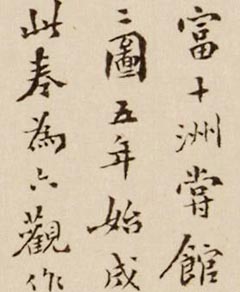 富十洲嘗館
二圖五年始成
此卷為六觀作